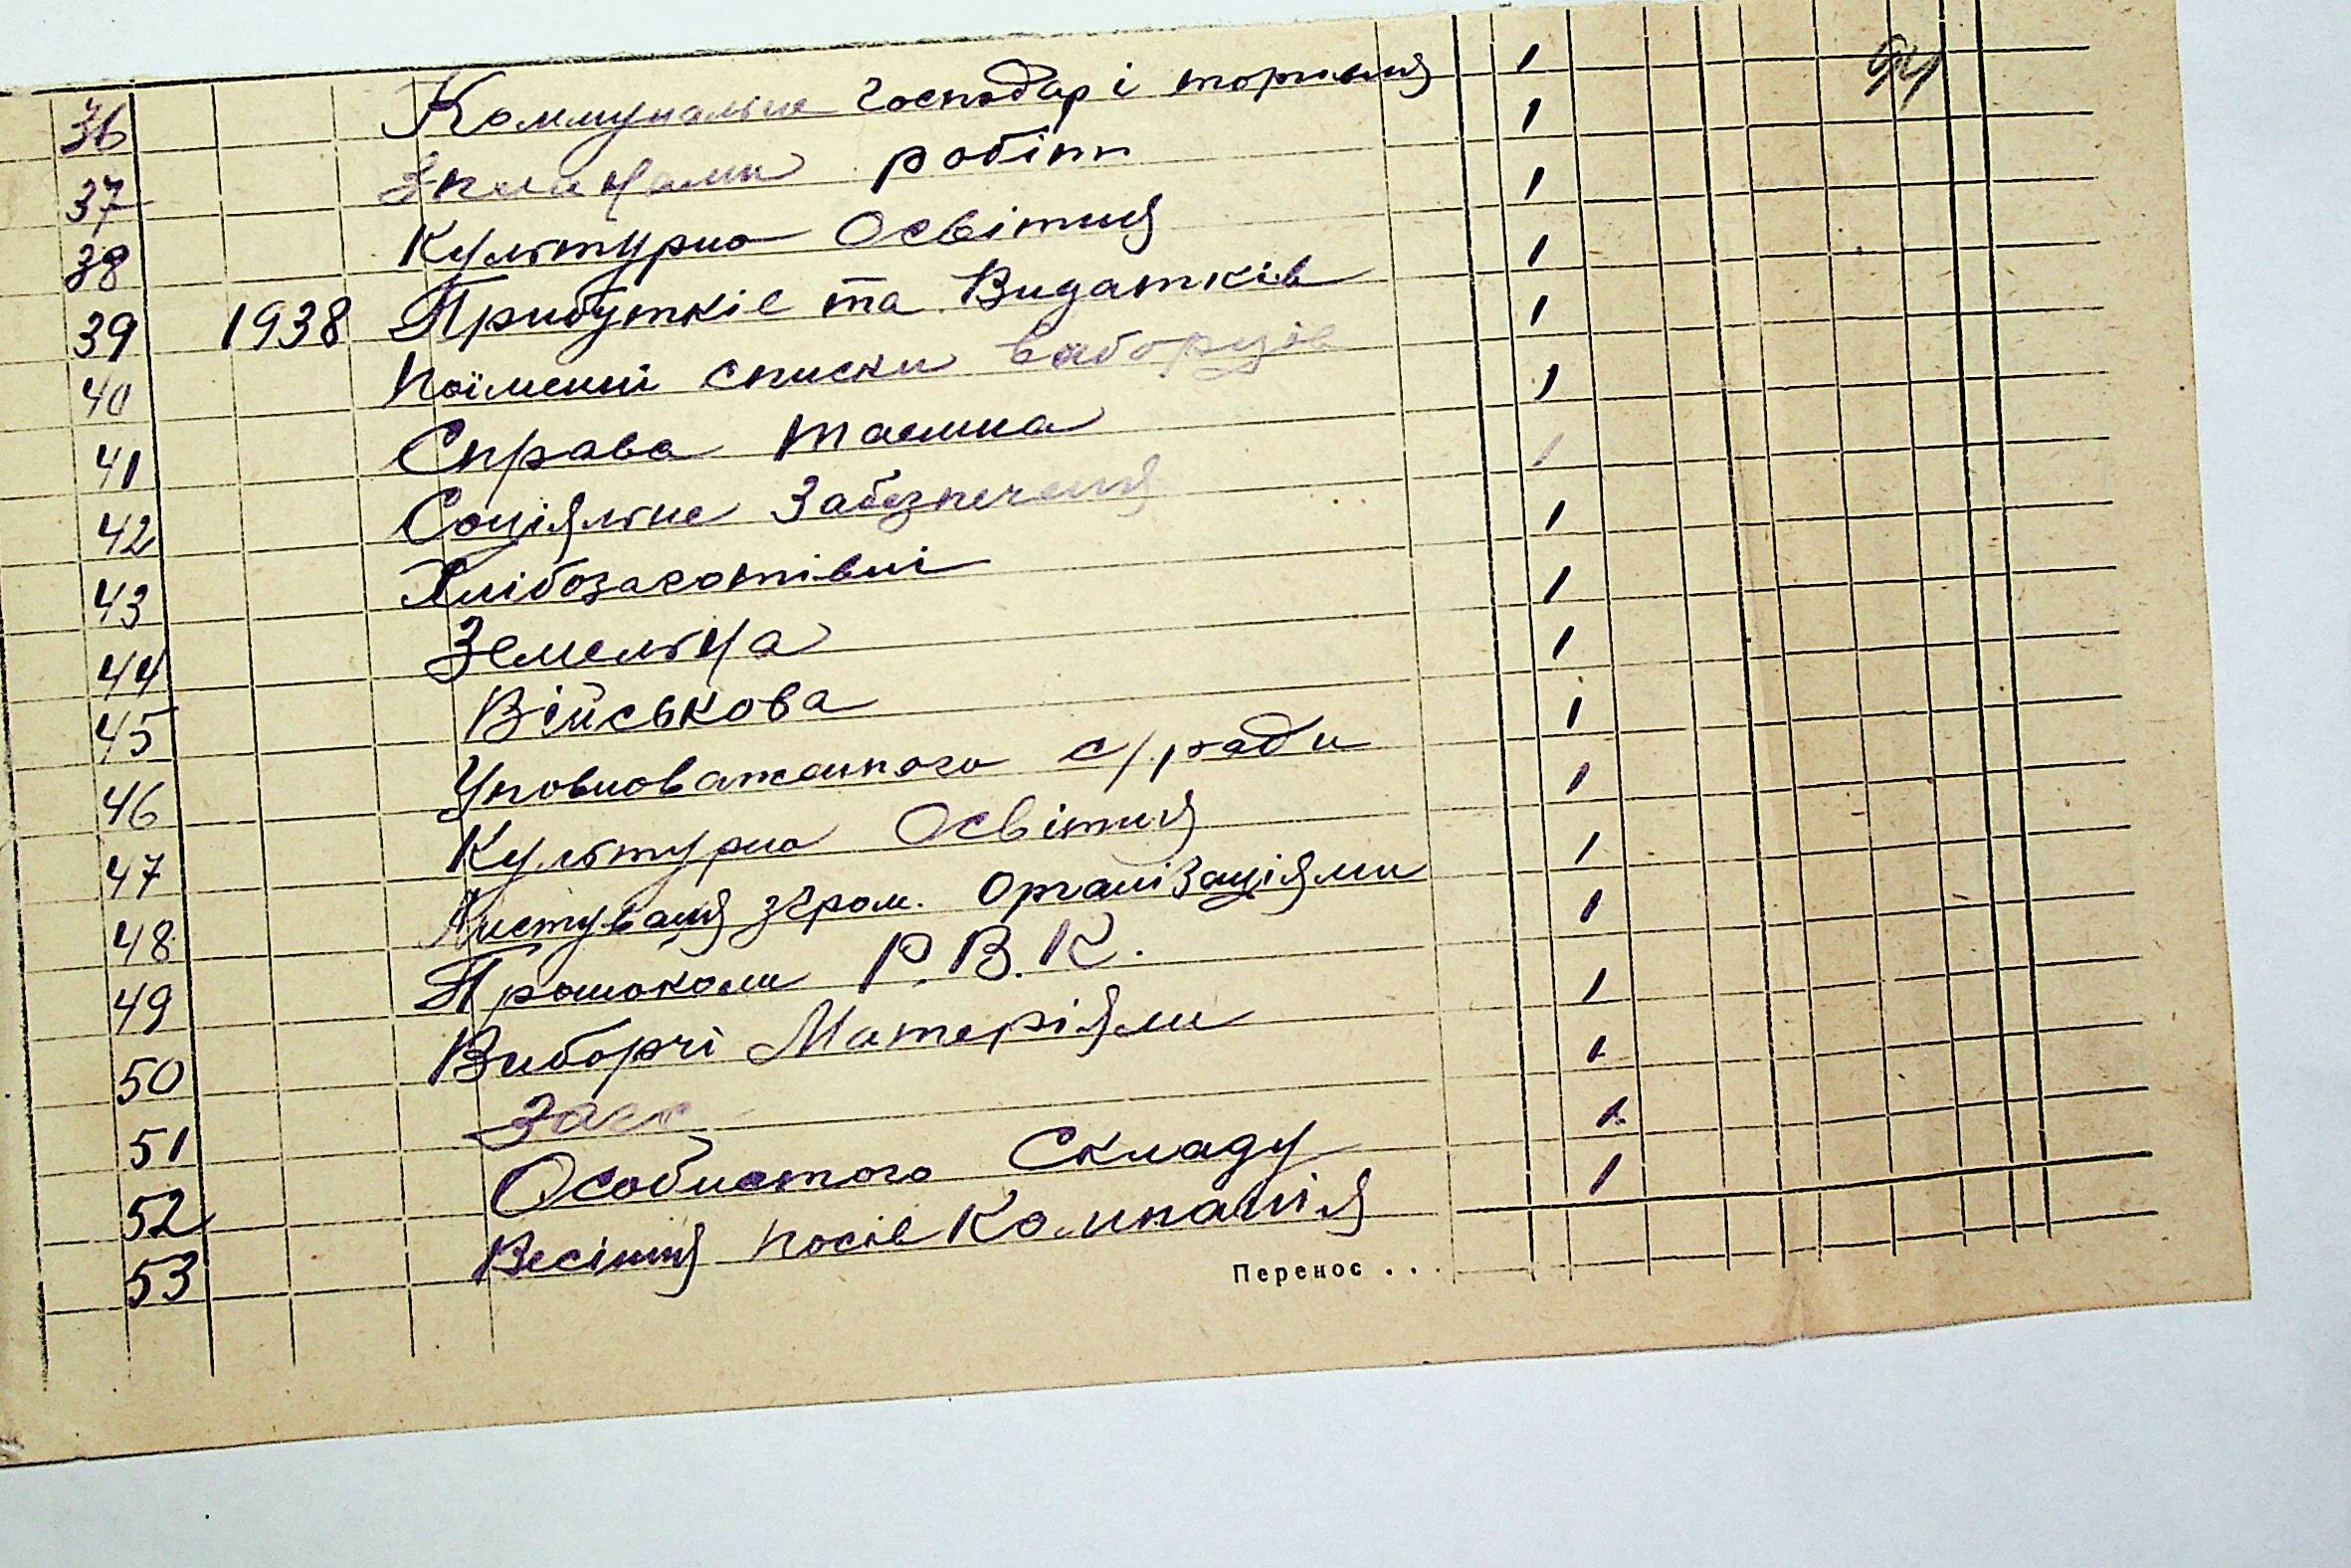 36 Коммунальне Господар і торгивля 1
37 робіт 1
38 Культурно Освітня 1
39 1938 Прибутків та Видатків 1
40 Поіменні списки ваборців 1
41 Справа таемна 1
42 Соціяльне Забезпеченя 1
43 Хлібозаготівлі 1
44 Земельна 1
45 Військова 1
46 Уповноваженного с/ради 1
47 Культурно Освітня 1
48 Листуваня з гром. Організаціями 1
49 Протоколи Р.В.К. 1
50 Виборчі Матеріяли 1
51 Загс 1
52 Особистого Складу 1
53 Весіння посів Компанія 1
Перенос . . .